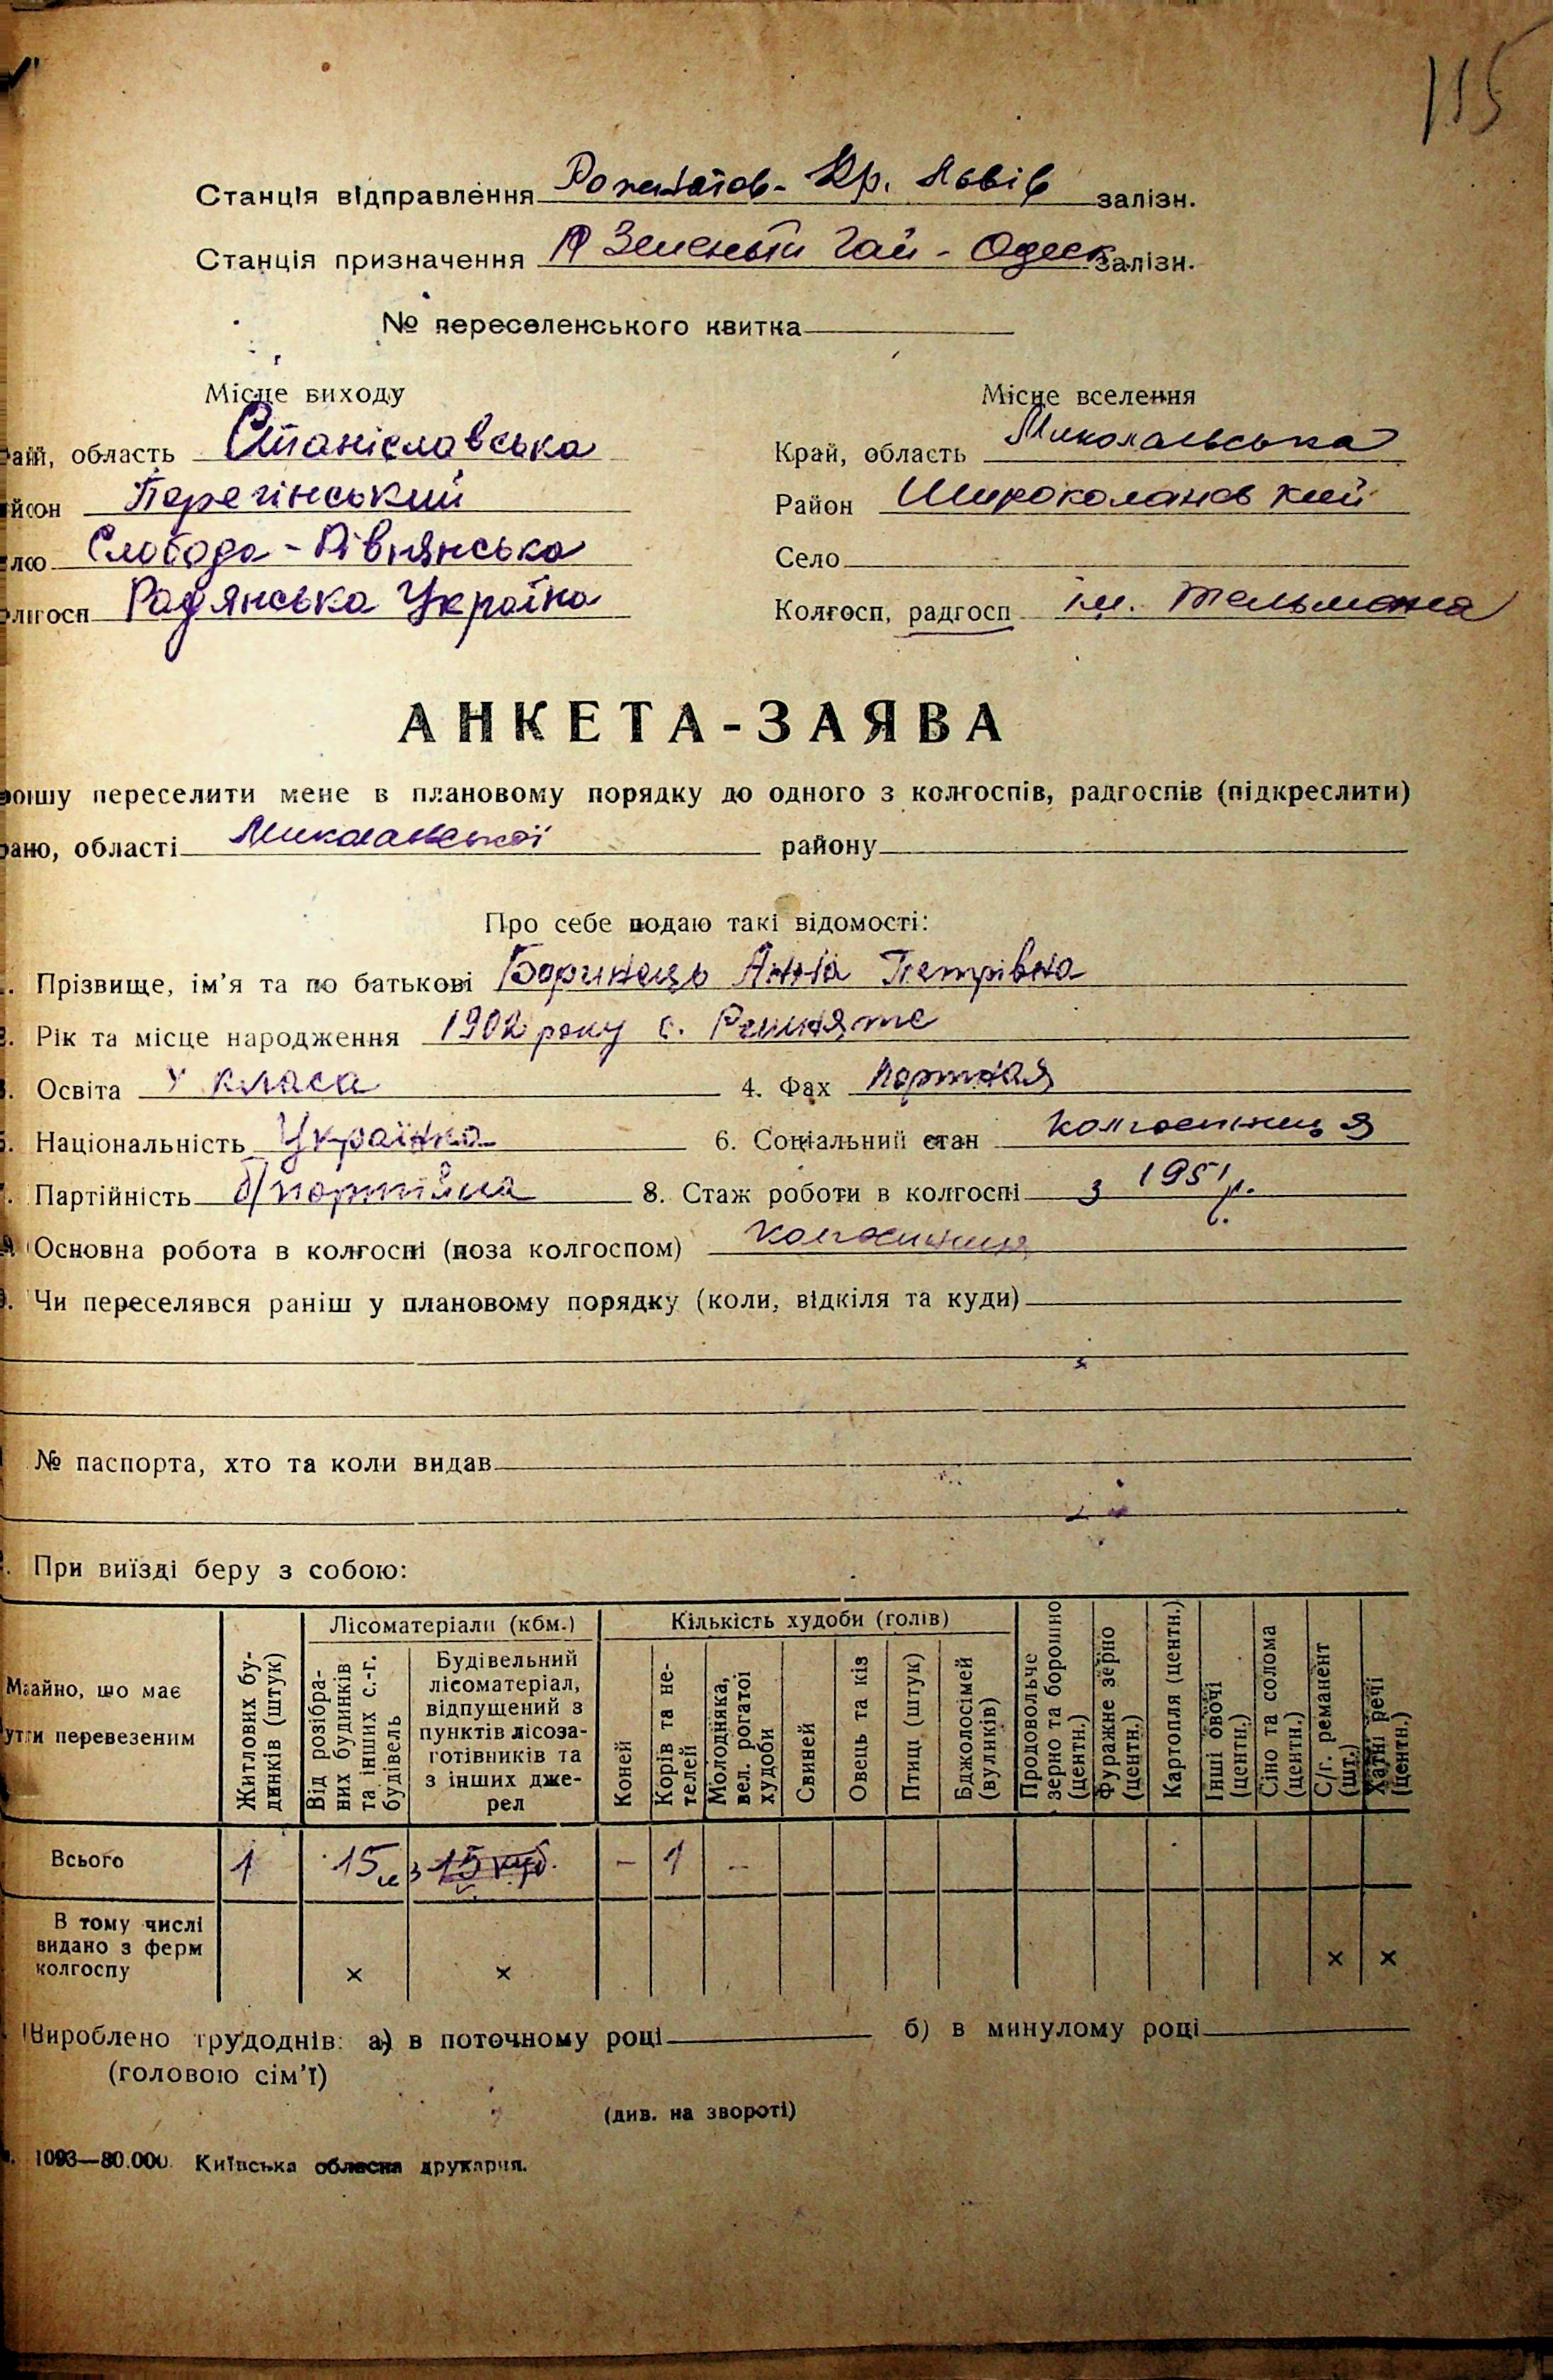 115
Станція відправлення Рожнятов - Кр. Львів залізн.
Станція призначення Зеленый Гай - Одеск залізн.
№ переселенського квитка
Місце виходу Місце вселення
край, область Станіславська Край, область Миколаївська
район Перегінський Район Широколанівський
село Слобода-Рівнянська Село
колгосп Радянська Україна Колгосп, радгосп ім. Тельмана
АНКЕТА-ЗАЯВА
Прошу переселити мене в плановому порядку до одного з колгоспів, радгоспів (підкреслити)
області Миколаївської району
Про себе подаю такі відомості:
Прізвище, ім'я та по батькові Боринець Анна Петрівна
Рік та місце народження 1902 року с.
Освіта 4 класа 4. Фах портная
Національність Українка 6. Соціальний стан колгоспниця
Партійність б/партійна 8. Стаж роботи в колгоспі з 1951 р.
Основна робота в колгоспі (поза колгоспом) колгоспниця
Чи переселявся раніш у плановому порядку (коли, відкіля та куди)
№ паспорта, хто та коли видав
При виїзді беру з собою:
Майно, що має бути перевезеним
Житлових будинків (штук)
Лісоматеріали (кбм.)
Від розібраних будинків та інших с.-г. будівель
Будівельний лісоматеріал, відпущений з пунктів лісозаготівників та з інших джерел
Кількість худоби (голів)
Коней
Корів та нетелей
Молодняка, вел. рогатої худоби
Свиней
Овець та кіз
Птиці (штук)
Бджолосімей (вуликів)
Продовольче зерно та борошно (центн.)
Фуражне зерно (центн.)
Картопля (центн.)
Інші овочі (центн.)
Сіно та солома (центн.)
С/г. реманент (шт.)
Хатні речі (центн.)
Всього 1 15 м3 15 куб. - 1 -
В тому числі видано з ферм колгоспу × × × ×
Вироблено трудоднів: а) в поточному році б) в минулому році
(головою сім'ї)
(див. на звороті)
1093—80.000. Київська обласна друкарня.